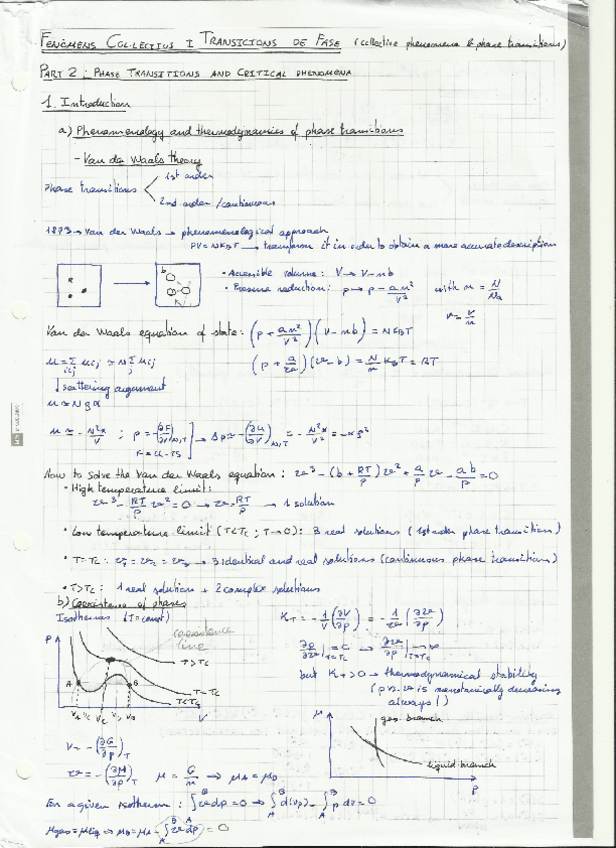 FENÒMENS COL·LECTIUS I TRANSICIONS DE FASE (collective phenomena & phase transitions)
PART 2: PHASE TRANSITIONS AND CRITICAL PHENOMENA
1. Introduction
a) Phenomenology and thermodynamics of phase transitions
- Van der Waals theory
Phase transitions < 1st order
2nd order / continuous
1873 → Van der Waals → phenomenological approach
PV = NK_BT → transform it in order to obtain a more accurate description
b
• Accessible volume: V → V - nb
• Pressure reduction: p → p - an²/V² with n = N/N_A
v = V/n
Van der Waals equation of state: (p + an²/V²)(V - nb) = NK_BT
(p + a/v²)(v - b) = N/n K_BT = RT
↓ scattering argument
How to solve the Van der Waals equation: v³ - (b + RT/p)v² + a/p v - ab/p = 0
• High temperature limit:
v³ - RT/p v² = 0 → v = RT/p → 1 solution
• Low temperature limit (T<Tc; T→0): 3 real solutions (1st order phase transition)
• T=Tc: v₁ = v₂ = v₃ → 3 identical and real solutions (continuous phase transition)
• T>Tc: 1 real solution + 2 complex solutions
b) Coexistence of phases
Isotherms (T=const)
coexistence line
P
T>Tc
T=Tc
T<Tc
A
B
V
K_T = -1/V (∂V/∂p) = -1/v (∂v/∂p)
but K_T > 0 → thermodynamical stability
(p vs. v is monotonically decreasing always!)
μ
gas branch
liquid branch
P
V = (∂G/∂p)_T
v = (∂μ/∂p)_T μ = G/n → μ_A = μ_B
For a given isotherm: ∫_A^B v dp = 0 → ∫_A^B d(vp) - ∫_A^B p dv = 0